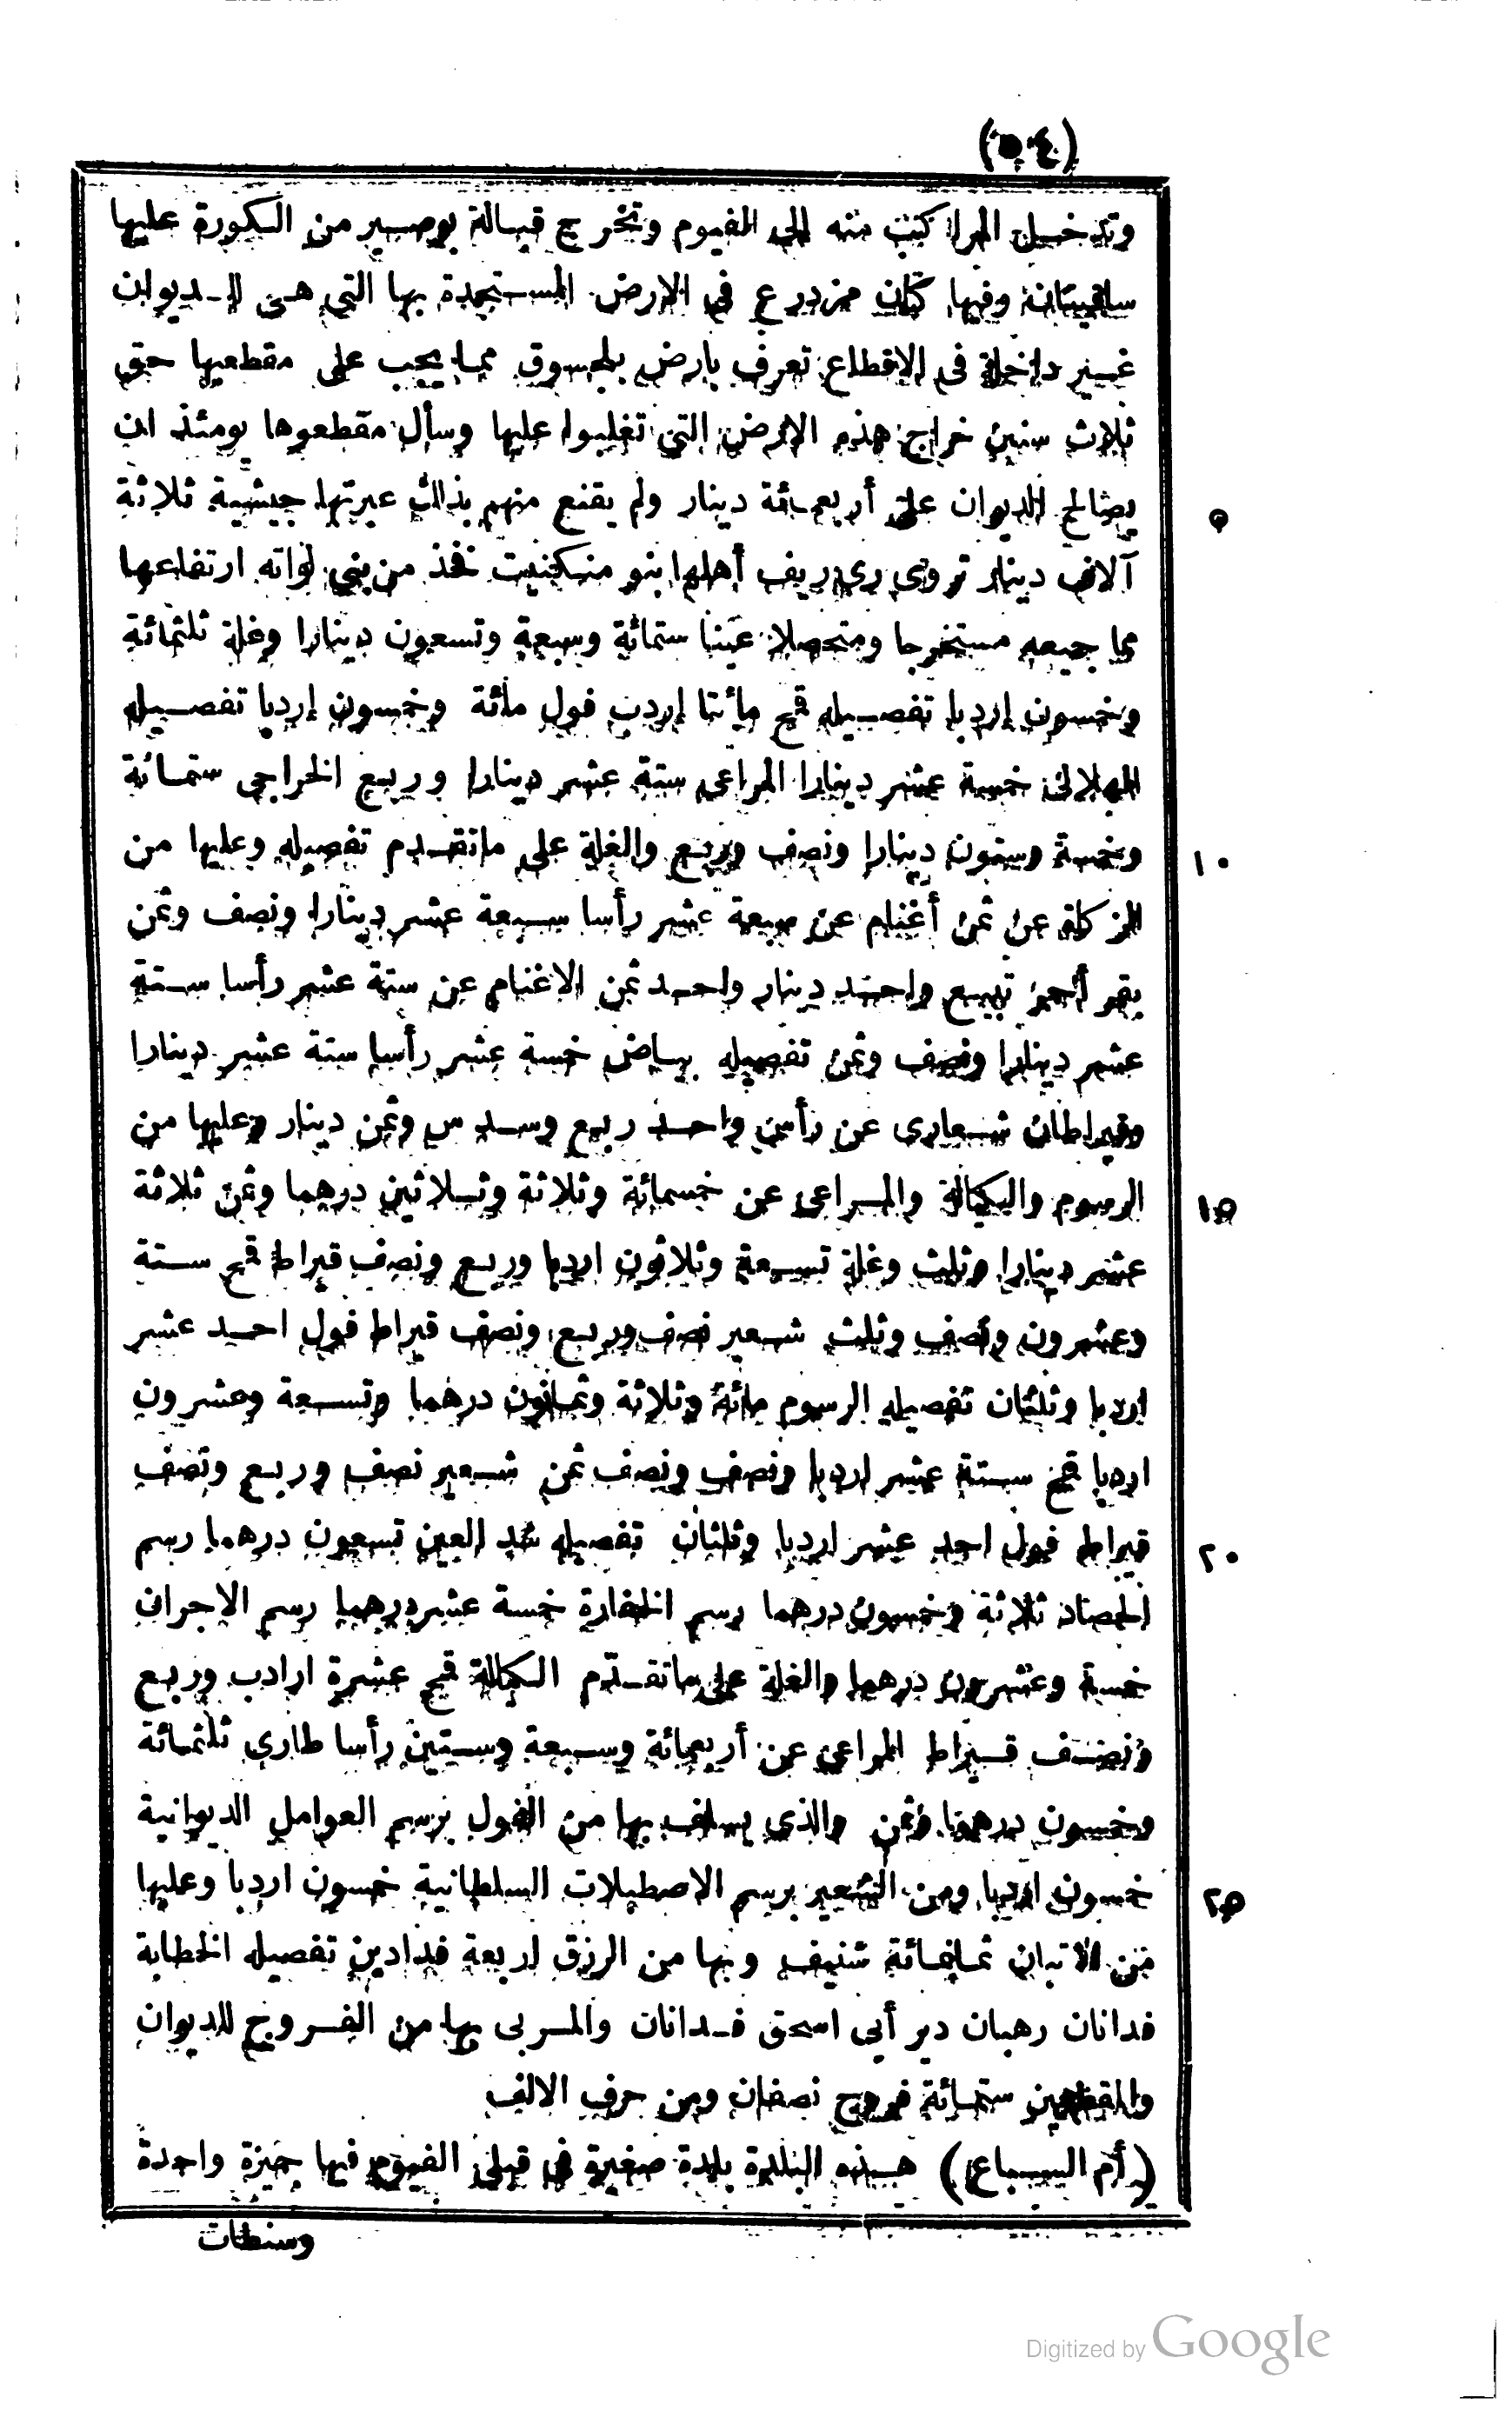 (٥٤)
وتدخل المراكب منه الى الفيوم وتخرج قبالة بوصير من الكورة عليها
ساقيتان وفيها كتان مزدرع فى الارض المستجدة بها التى هى للديوان
غير داخلة فى الاقطاع تعرف بارض بلجسوق مما يجب على مقطعيها حق
ثلاث سنين خراج هذه الارض التى تغلبوا عليها وسأل مقطعوها يومئذ ان
يصالح الديوان على أربعمائة دينار ولم يقنع منهم بذلك عبرتها جيشية ثلاثة
٥
آلاف دينار تروى رى ريف أهلها بنو منكنيت فخذ من بنى لواته ارتفاعها
مما جميعه مستخرجا ومتحصلا عينا ستمائة وسبعة وتسعون دينارا وغلة ثلثمائة
وخمسون إردبا تفصيله قمح مائتا إردب فول مائة وخمسون إردبا تفصيله
الهلالى خمسة عشر دينارا المراعى ستة عشر دينارا وربع الخراجى ستمائة
وخمسة وستون دينارا ونصف وربع والغلة على ماتقدم تفصيله وعليها من
١٠
الزكاة عن ثمن أغنام عن سبعة عشر رأسا سبعة عشر دينارا ونصف وثمن
بقر أحمر تبيع واحد دينار واحد ثمن الاغنام عن ستة عشر رأسا ستة
عشر دينارا ونصف وثمن تفصيله بياض خمسة عشر رأسا ستة عشر دينارا
وقيراطان شعارى عن رأس واحد ربع وسدس وثمن دينار وعليها من
الرسوم والكيالة والمراعى عن خمسمائة وثلاثة وثلاثين درهما وثمن ثلاثة
١٥
عشر دينارا وثلث وغلة تسعة وثلاثون اردبا وربع ونصف قيراط قمح ستة
وعشرون ونصف وثلث شعير نصف وربع ونصف قيراط فول احد عشر
اردبا وثلثان تفصيله الرسوم مائة وثلاثة وثمانون درهما وتسعة وعشرون
اردبا قمح ستة عشر اردبا ونصف ونصف ثمن شعير نصف وربع ونصف
قيراط فول احد عشر اردبا وثلثان تفصيله شد العين تسعون درهما رسم
٢٠
الحصاد ثلاثة وخمسون درهما رسم الخفارة خمسة عشر درهما رسم الاجران
خمسة وعشرون درهما والغلة على ماتقدّم الكيالة قمح عشرة ارادب وربع
ونصف قيراط المراعى عن أربعمائة وسبعة وستين رأسا طارى ثلثمائة
وخمسون درهما وثمن والذى يسلف بها من الفول برسم العوامل الديوانية
خمسون اردبا ومن الشعير برسم الاصطبلات السلطانية خمسون اردبا وعليها
٢٥
من الاتبان ثمانمائة شنيف وبها من الرزق اربعة فدادين تفصيله الخطابة
فدانان رهبان دير أبى اسحق فدانان والمربى بها من الفروج للديوان
والمقطعين ستمائة فروج نصفان ومن حرف الالف
(أم السباع) هذه البلدة بلدة صغيرة فى قبلى الفيوم فيها جيزة واحدة
وسنطات
Digitized by Google